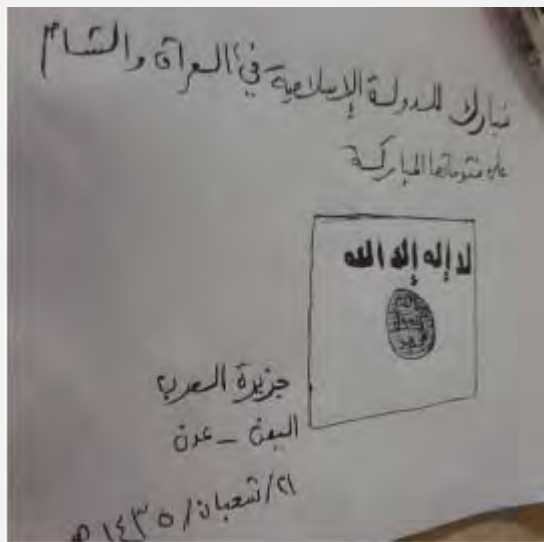 نبارك للدولة الإسلامية في العراق والشام
على فتوحاتها المباركة
لا إله إلا الله
جزيرة العرب
اليمن - عدن
٢١/شعبان/١٤٣٥ هـ